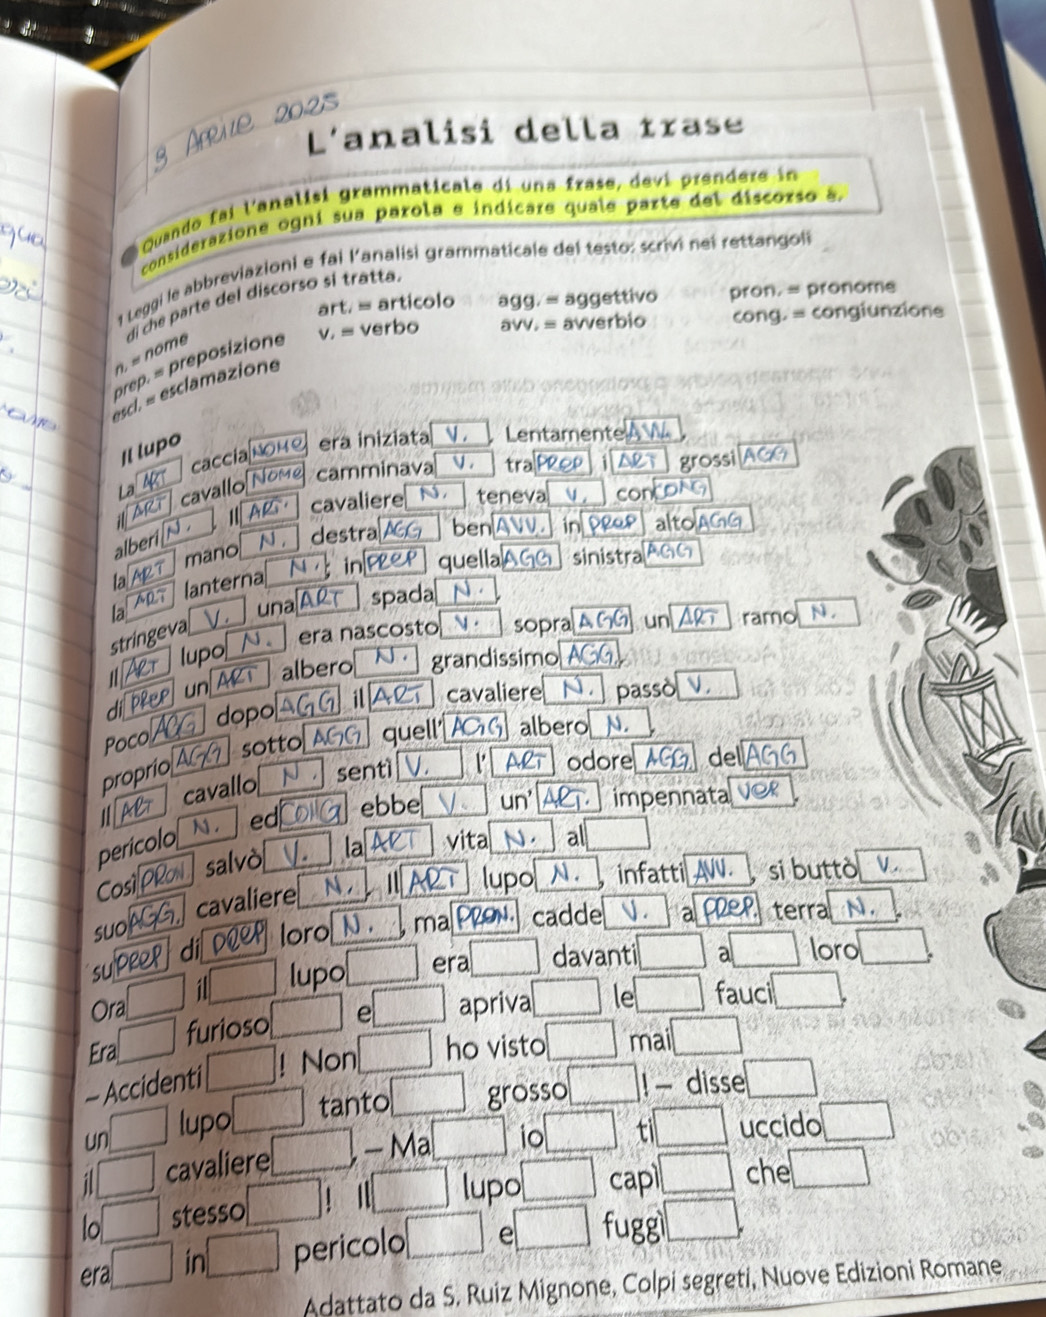 9 APRILE 2025
L'analisi della frase
Quando fai l'analisi grammaticale di una frase, devi prendere in
considerazione ogni sua parola e indicare quale parte del discorso è.
1 Leggi le abbreviazioni e fai l'analisi grammaticale del testo: scrivi nei rettangoli
di che parte del discorso si tratta.
n. = nome art. = articolo agg. = aggettivo pron. = pronome
prep. = preposizione v. = verbo avv. = avverbio cong. = congiunzione
escl. = esclamazione
Il lupo
La ART caccia NOME era iniziata V. . Lentamente AVV. ,
il ART cavallo NOME camminava V. tra PREP i ART grossi AGG
alberi N. . Il ART. cavaliere N. teneva V. con CONG
la ART mano N. destra AGG ben AVV. in PREP alto AGG
la ART lanterna N. ; in PREP quella AGG sinistra AGG
stringeva V. una ART spada N. .
Il ART lupo N. era nascosto V. sopra AGG un ART ramo N.
di PREP un ART albero N. grandissimo AGG .
Poco AGG dopo AGG il ART cavaliere N. passò V.
proprio AGG sotto AGG quell' AGG albero N. .
Il ART cavallo N. sentì V. l' ART odore AGG del AGG
pericolo N. ed CONG ebbe V. un' ART. impennata VER .
Così PRON salvò V. la ART vita N. al
suo AGG. cavaliere N. . Il ART lupo N. , infatti AVV. , si buttò V.
su PREP di PREP loro N. , ma PRON. cadde V. a PREP. terra N. .
Ora il lupo era davanti a loro .
Era furioso e apriva le fauci .
– Accidenti ! Non ho visto mai
un lupo tanto grosso ! – disse
il cavaliere , – Ma io ti uccido
lo stesso ! Il lupo capì che
era in pericolo e fuggì .
Adattato da S. Ruiz Mignone, Colpi segreti, Nuove Edizioni Romane